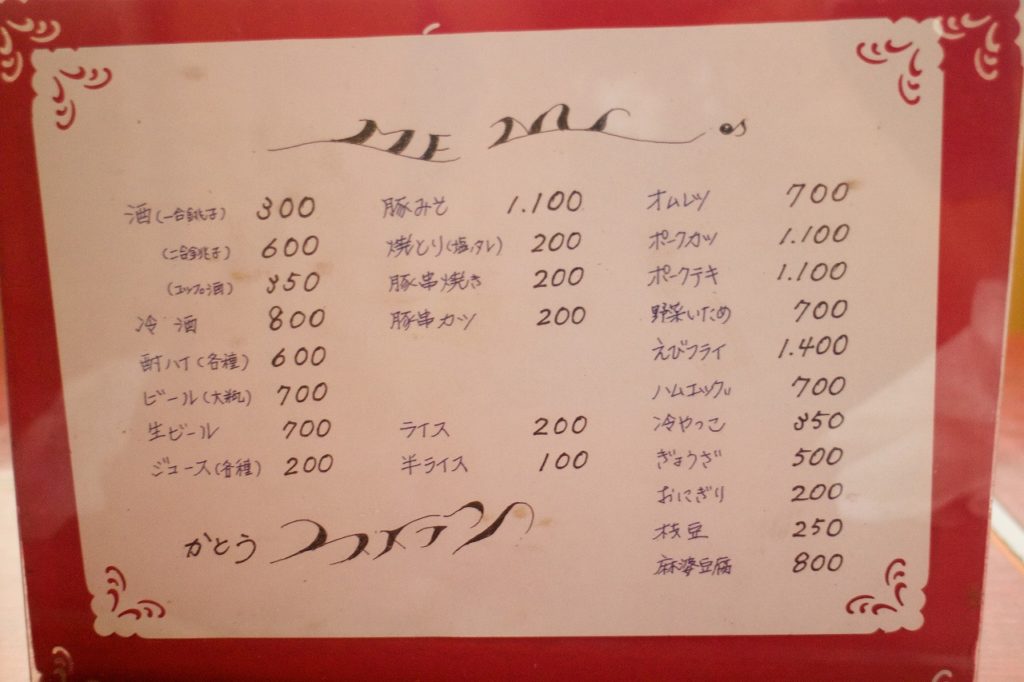 MENU
酒(一合銚子) 300
(二合銚子) 600
(コップ酒) 350
冷酒 800
酎ハイ(各種) 600
ビール(大瓶) 700
生ビール 700
ジュース(各種) 200
豚みそ 1.100
焼とり(塩,タレ) 200
豚串焼き 200
豚串カツ 200
ライス 200
半ライス 100
オムレツ 700
ポークカツ 1.100
ポークテキ 1.100
野菜いため 700
えびフライ 1.400
ハムエッグ 700
冷やっこ 350
ぎょうざ 500
おにぎり 200
枝豆 250
麻婆豆腐 800
かとう